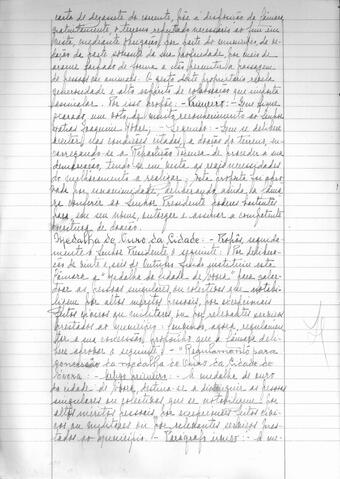 carta de dezassete do corrente, pôs à disposição da Câmara,
gratuitamente, o terreno reputado necessário ao fim em
vista, mediante obrigação, por parte do município, de ve-
dação da parte sobrante da sua propriedade por meio de
arame farpado de forma a não permitir a passagem
de pessoas ou animais. O gesto deste proprietário revela
generosidade e alto espírito de colaboração que importa
assinalar. Por isso propõe: - Primeiro: - Que fique
exarado um voto de muito reconhecimento ao Senhor
Joaquim - Segundo: - Que se delibere
aceitar, nas condições citadas, a doação do terreno, en-
carregando-se a Repartição Técnica de proceder à sua
demarcação, tendo em vista as reais necessidades
do melhoramento a realizar. Esta proposta foi apro-
vada por unanimidade, deliberando, ainda, a Câma-
ra conferir ao Senhor Presidente poderes bastantes
para, em seu nome, outorgar e assinar a competente
escritura de doação.
Medalha de Ouro da Cidade: - Propôs seguida-
mente o Senhor Presidente o seguinte: - Por delibera-
ção de vinte e seis de Outubro findo instituiu esta
Câmara a "Medalha da Cidade de Évora" para galar-
doar as pessoas singulares ou colectivas que se notabi-
lizem por altos méritos pessoais, por excepcionais
feitos cívicos ou militares, ou por relevantes serviços
prestados ao município. Convindo, agora, regulamen-
tar a sua concessão, proponho que a Câmara deli-
bere aprovar o seguinte: - "Regulamento para
concessão da Medalha de Ouro da Cidade de
Évora: - Artigo primeiro: - A medalha de ouro
da cidade de Évora, destina-se a distinguir as pessoas
singulares ou colectivas que se notabilizem por
altos méritos pessoais, por excepcionais feitos cívi-
cos ou militares ou por relevantes serviços pres-
tados ao município. - Parágrafo único: - A me-